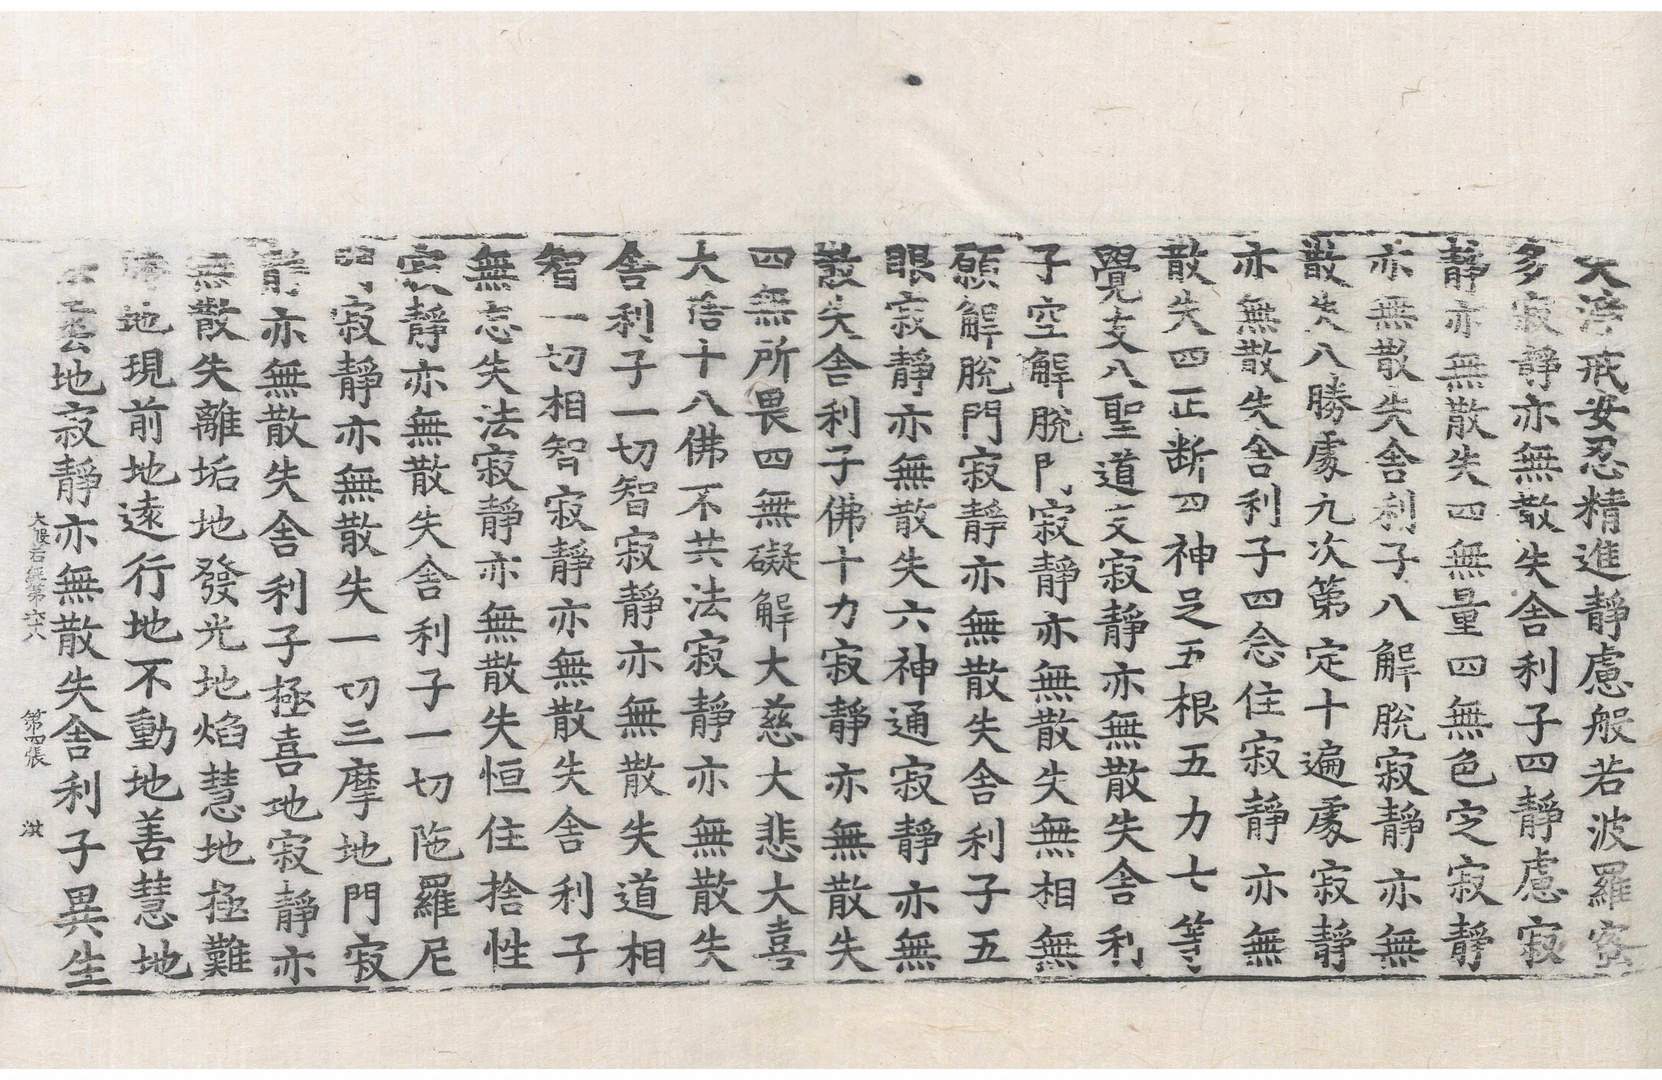 大淨戒安忍精進靜慮般若波羅蜜
多寂靜亦無散失舍利子四靜慮寂
靜亦無散失四無量四無色定寂靜
亦無散失舍利子八解脫寂靜亦無
散失八勝處九次第定十遍處寂靜
亦無散失舍利子四念住寂靜亦無
散失四正斷四神足五根五力七等
覺支八聖道支寂靜亦無散失舍利
子空解脫門寂靜亦無散失無相無
願解脫門寂靜亦無散失舍利子五
眼寂靜亦無散失六神通寂靜亦無
散失舍利子佛十力寂靜亦無散失
四無所畏四無礙解大慈大悲大喜
大捨十八佛不共法寂靜亦無散失
舍利子一切智寂靜亦無散失道相
智一切相智寂靜亦無散失舍利子
無忘失法寂靜亦無散失恒住捨性
寂靜亦無散失舍利子一切陁羅尼
門寂靜亦無散失一切三摩地門寂
靜亦無散失舍利子極喜地寂靜亦
無散失離垢地發光地焰慧地極難
勝地現前地遠行地不動地善慧地
法雲地寂靜亦無散失舍利子異生
大般若經第六八 第四張 淡